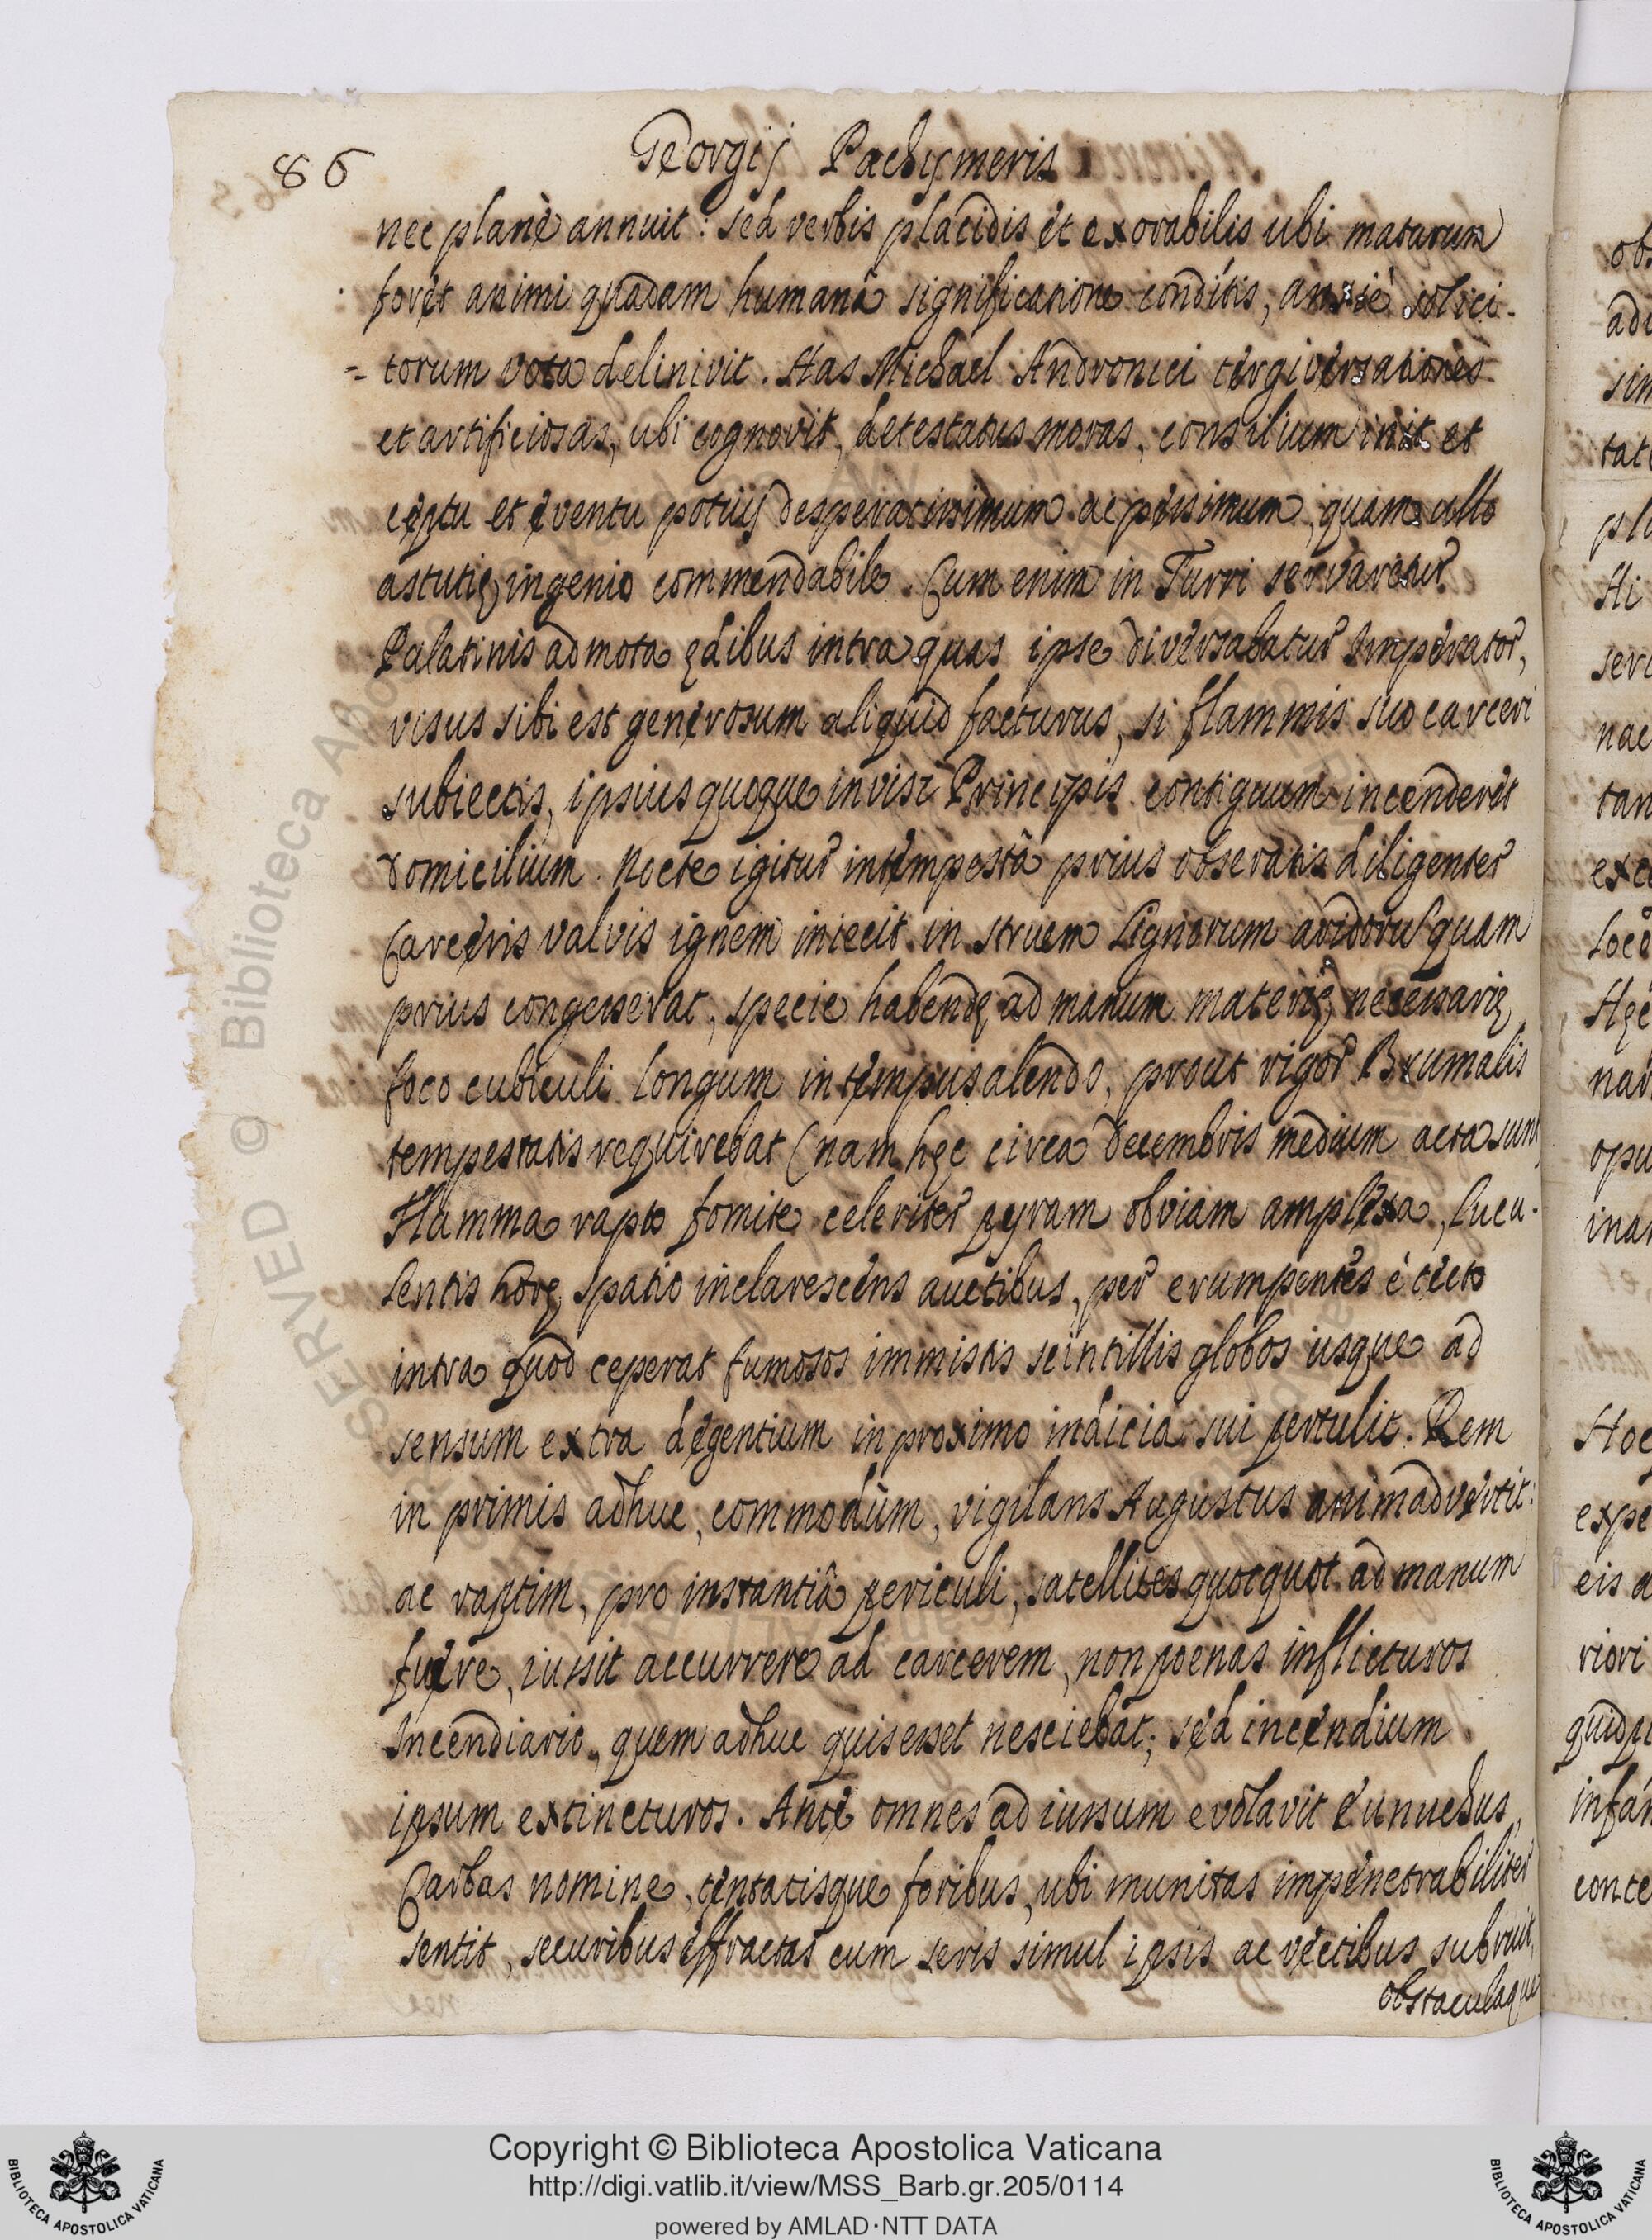 86
Georgij Pachymeris
nec planè annuit: sed verbis placidis et exorabilis ubi maturum
foret animi quadam humanâ significatione conditis, anxiè solici-
torum vota delinivit. Has Michael Andronici tergiversationes
et artificiosas, ubi cognovit, detestatus moras, consilium init et
cęptu et eventu potius desperatissimum ac pessimum, quam ullo
astutię ingenio commendabile. Cum enim in Turri servaretur
Palatinis admota ędibus intra quas ipse diversabatur Imperator,
visus sibi est generosum aliquid facturus, si flammis suo carceri
subiectis, ipsius quoque invisi Principis contiguum incenderet
domicilium. Nocte igitur intempestâ prius obseratis diligenter
Carceris valvis ignem iniecit in struem Lignorum aridoru quam
prius congesserat, specie habendę ad manum materię, necessarię
foco cubiculi longum in tempus alendo, prout rigor Brumalis
tempestatis requirebat (nam hęc circa decembris medium acta sunt)
Flamma rapto fomite celeriter pyram obviam amplexa, lucu-
lentis horę spatio inclarescens auctibus, per erumpentes è tecto
intra quod ceperat fumosos immistis scintillis globos usque ad
sensum extra degentium in proximo indicia sui pertulit. Rem
in primis adhuc, commodùm, vigilans Augustus animadvertit:
ac raptim, pro instantiâ periculi, satellites quotquot ad manum
fuere, iussit accurrere ad carcerem, non poenas inflicturos
Incendiario, quem adhuc quis esset nesciebat; sed incendium
ipsum extincturos. Ante omnes ad iussum evolavit Eunuchus,
Carbas nomine, tentatisque foribus, ubi munitas impenetrabiliter
sentit, securibus effractas cum seris simul ipsis ac vectibus subruit,
obstaculaque
Copyright © Biblioteca Apostolica Vaticana
http://digi.vatlib.it/view/MSS_Barb.gr.205/0114
powered by AMLAD·NTT DATA
BIBLIOTECA APOSTOLICA VATICANA
BIBLIOTECA APOSTOLICA VATICANA